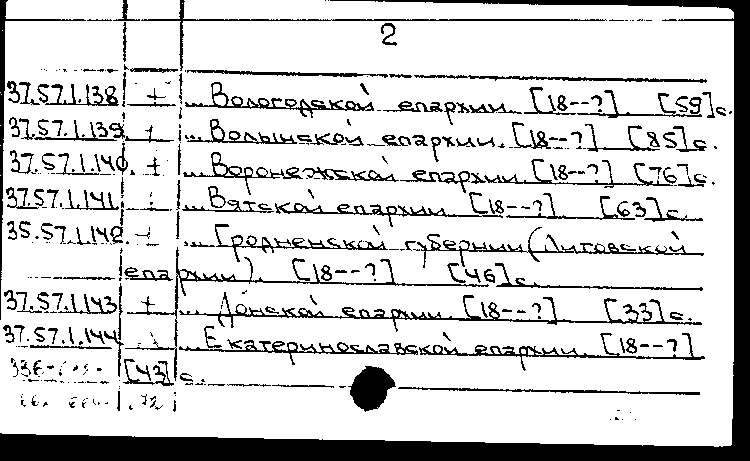 2
37.57.1.138 + ... Вологодской епархии. [18--?]. [59]с.
37.57.1.139 + ... Волынской епархии. [18--?] [85]с.
37.57.1.140. + ... Воронежской епархии. [18--?] [76]с.
37.57.1.141 ... Вятской епархии. [18--?]. [63]с.
35.57.1.142. + ... Гродненской губернии (Литовской
епархии). [18--?] [46]с.
37.57.1.143 + ... Донской епархии. [18--?]. [33]с.
37.57.1.144 ... Екатеринославской епархии. [18--?]
[43]с.